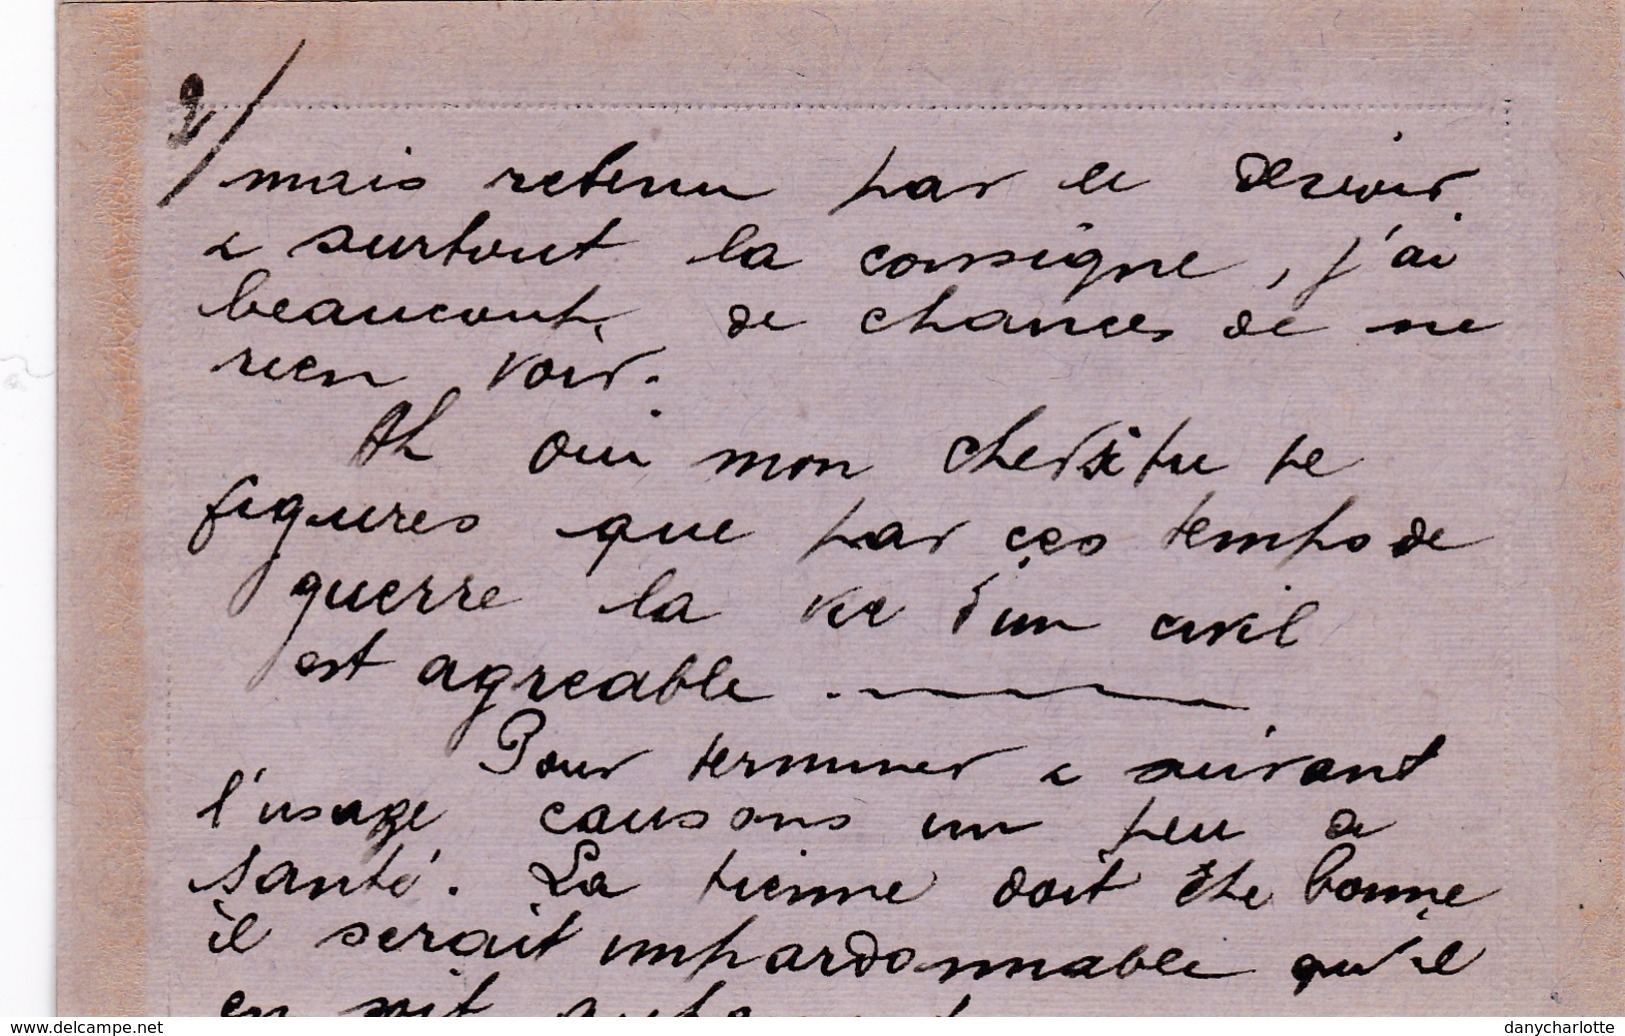 2/
mais retenu par le devoir
& surtout la consigne, j'ai
beaucoup de chances de ne
rien voir.
Ah oui mon cher si tu te
figures que par ces temps de
guerre la vie d'un civil
est agreable.
Pour terminer & suivant
l'usage causons un peu de
santé. La tienne doit être bonne
il serait impardonnable qu'il
en soit autrement
www.delcampe.net
danycharlotte